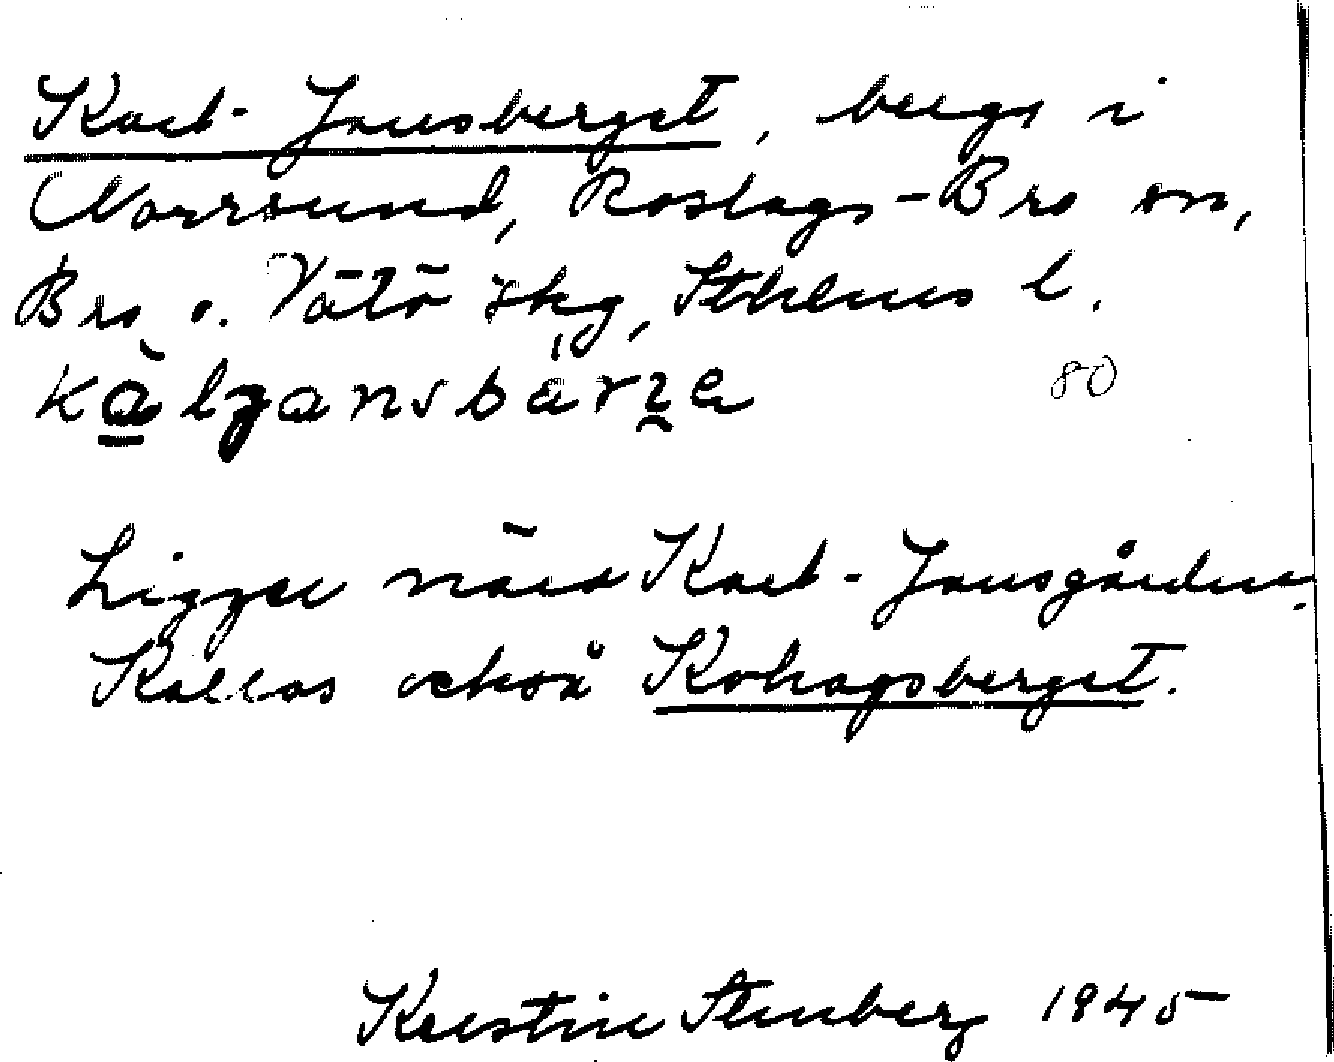 Karl-Jansberget, berg i
Norrsund, Roslags-Bro sn,
Bro o. Vätö skg, Sthlms l.
80
Ligger nära Karl-Jansgården.
Kallas också Kohagsberget.
Kerstin Stenberg 1945